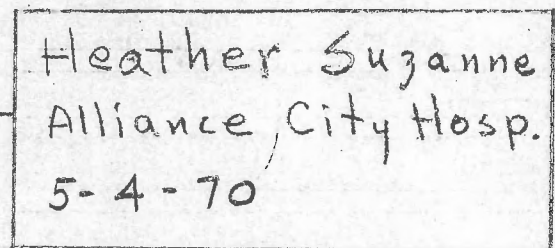 Heather Suzanne
Alliance, City Hosp.
5-4-70